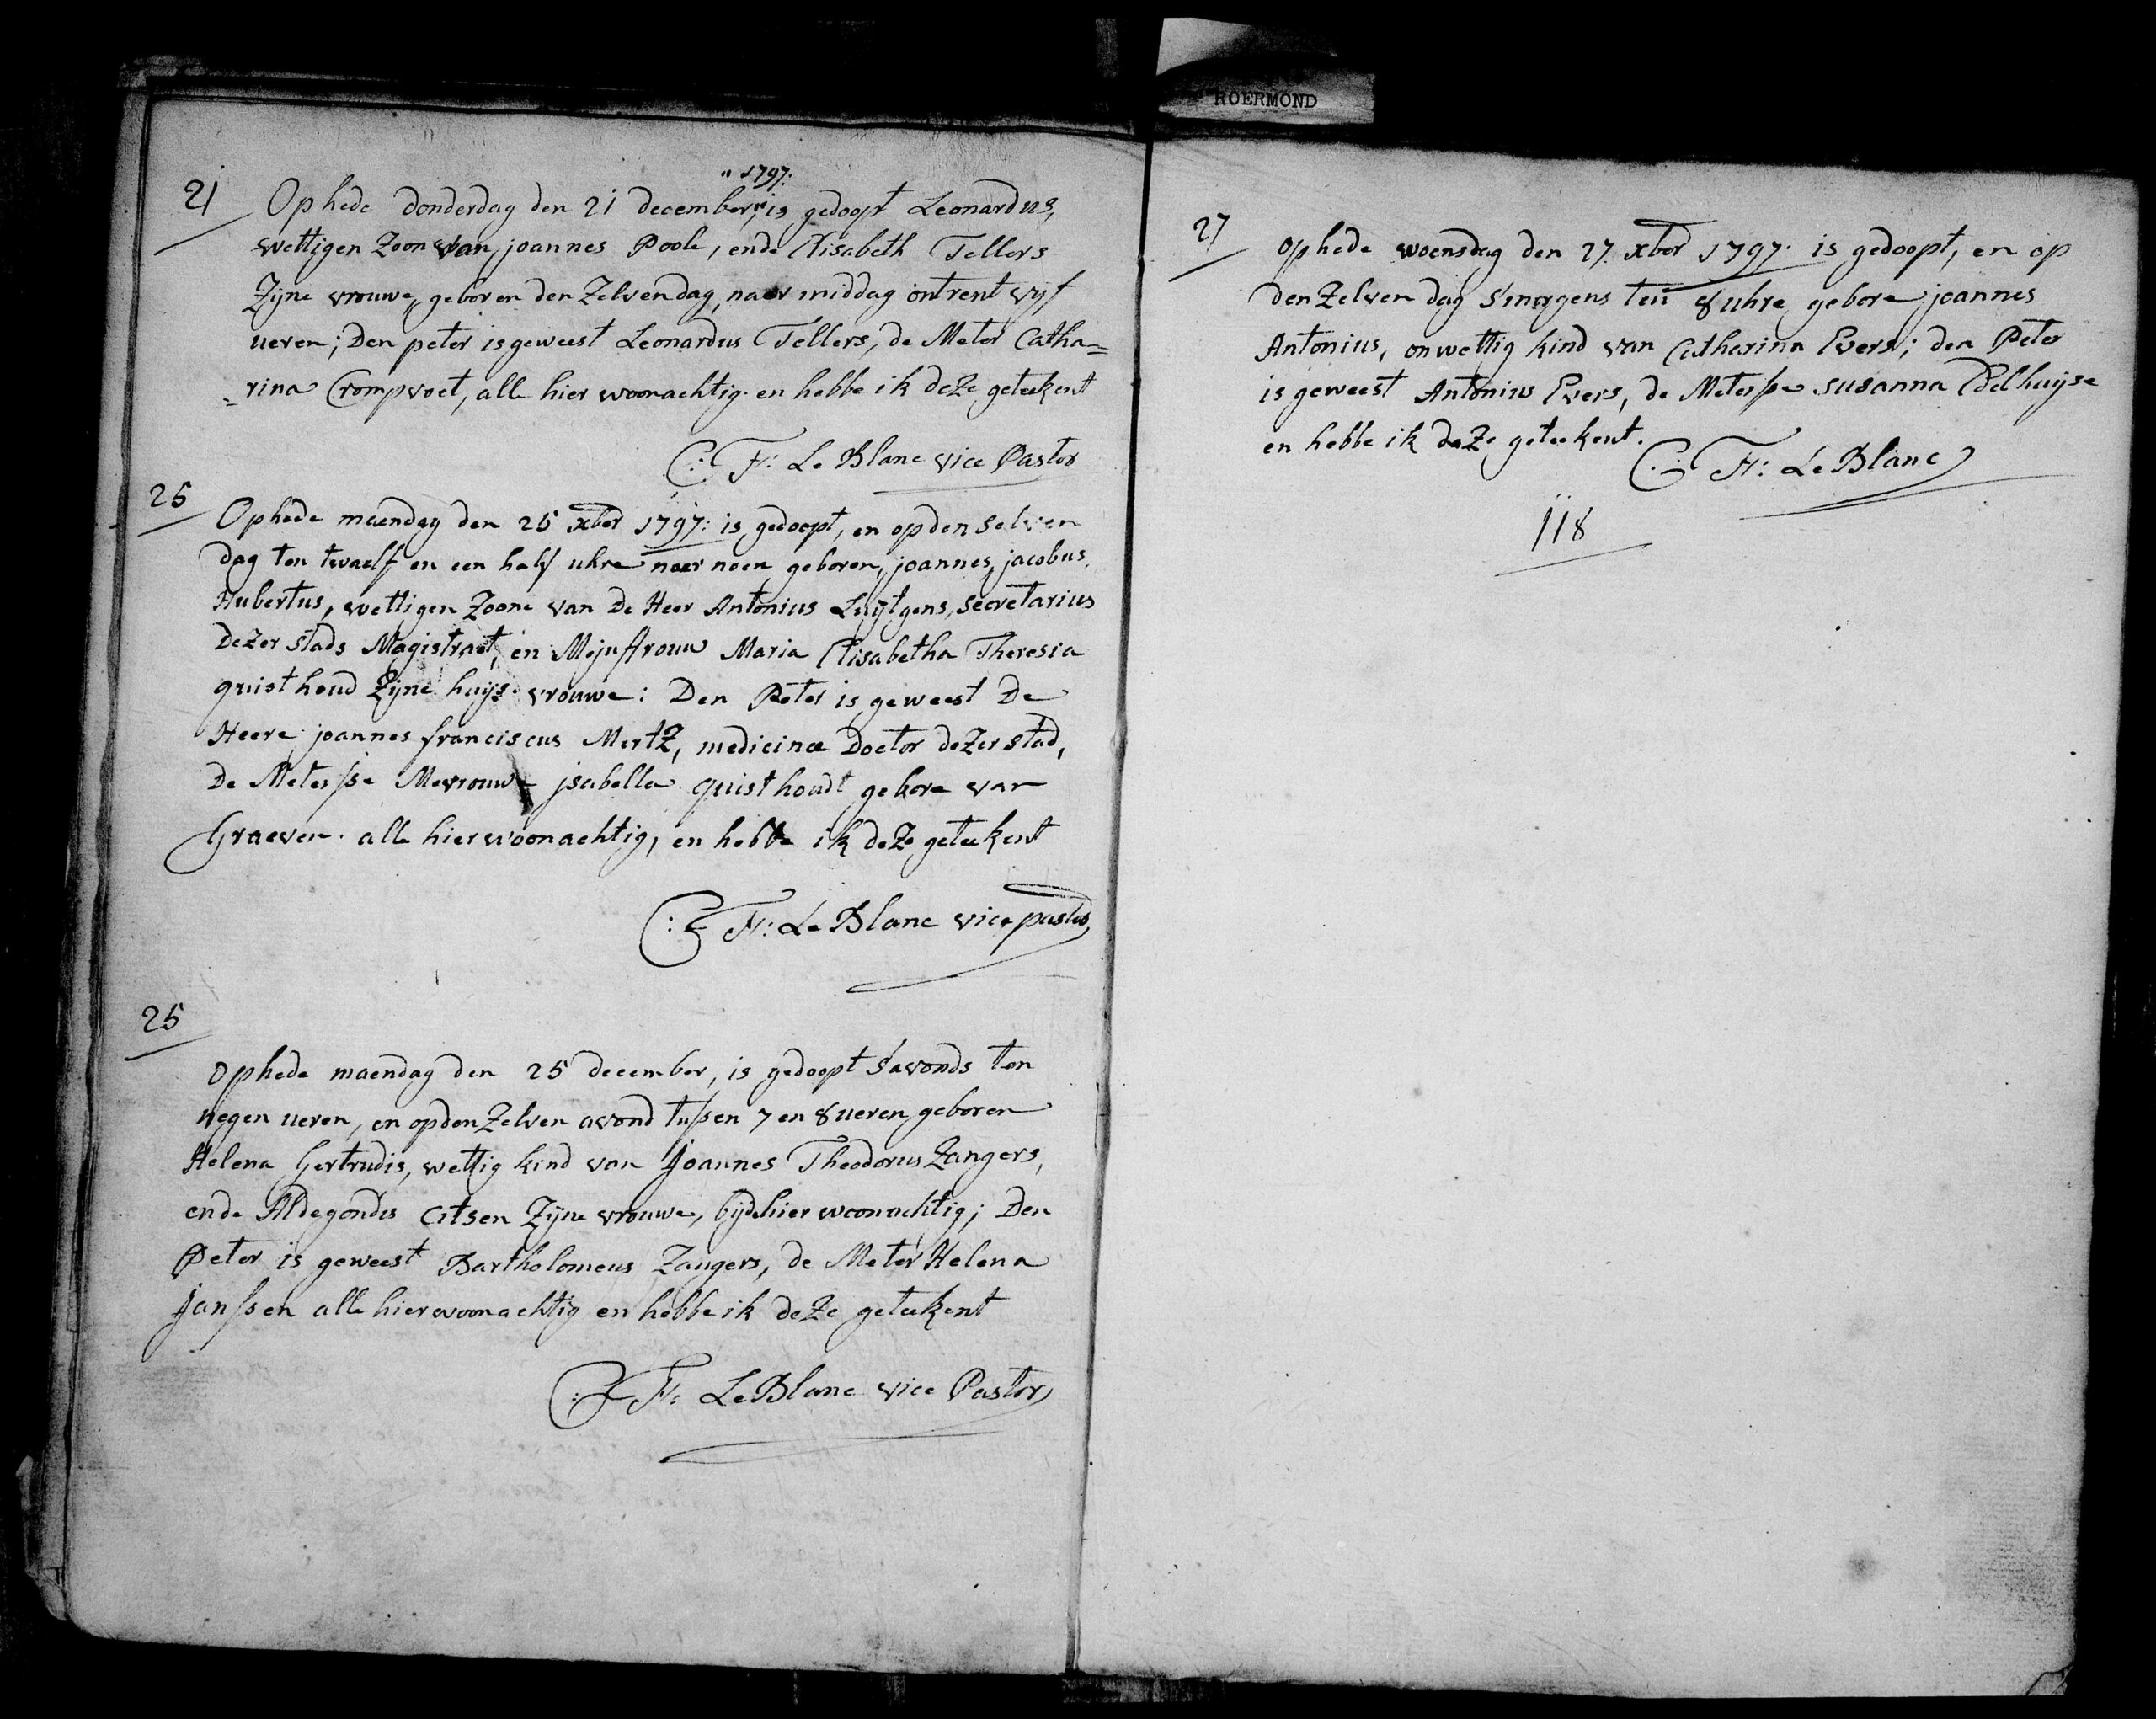 ROERMOND
21
" 1797:
Op hede donderdag den 21 december," is gedoopt Leonardus,
wettigen Zoon van joannes Poole, ende Elisabeth Tellers
Zijne vrouwe, geboren den Zelven dag, naer middag ontrent vijf
ueren; Den peter is geweest Leonardus Tellers, de Meter Catha=
=rina Crompvoet, alle hier woonachtig. en hebbe ik deze geteekent
C: F: Le Blanc vice Pastor
25
Op hede maendag den 25 xber 1797: is gedoopt, en op den selven
dag ten twaelf en een half uhre naer noen geboren, joannes, jacobus,
Hubertus, wettigen Zoone van De Heer Antonius Luijtgens, secretarius
Dezer stads Magistraet, en Mejuffrouw Maria Elisabetha Theresia
quisthoud Zijne huijs vrouwe: Den Peter is geweest De
Heere joannes franciscus Mertz, medicinæ Doctor dezer stad,
De Metersse Mevrouwe jsabella quisthoudt gebore van
Graeven. alle hier woonachtig, en hebbe ik deze geteekent
C: F: Le Blanc vice pastor
25
Op hede maendag den 25 december, is gedoopt s'avonds ten
negen ueren, en op den Zelven avond tussen 7 en 8 ueren geboren
Helena Gertrudis, wettig kind van Joannes Theodorus Zangers,
ende Aldegondis Citsen Zijne vrouwe, bijde hier woonachtig; Den
Peter is geweest Bartholomeus Zangers, de Meter Helena
Janssen alle hier woonachtig en hebbe ik deze geteekent
C: F: Le Blanc vice Pastor
27
Op hede woensdag den 27. xber 1797. is gedoopt, en op
den Zelven dag s'morgens ten 8 uhre gebore joannes
Antonius, onwettig kind van Catharina Evers; den Peter
is geweest Antonius Evers, de Metersse susanna Edelhuijse
en hebbe ik deze geteekent.
C: F: Le Blanc
118